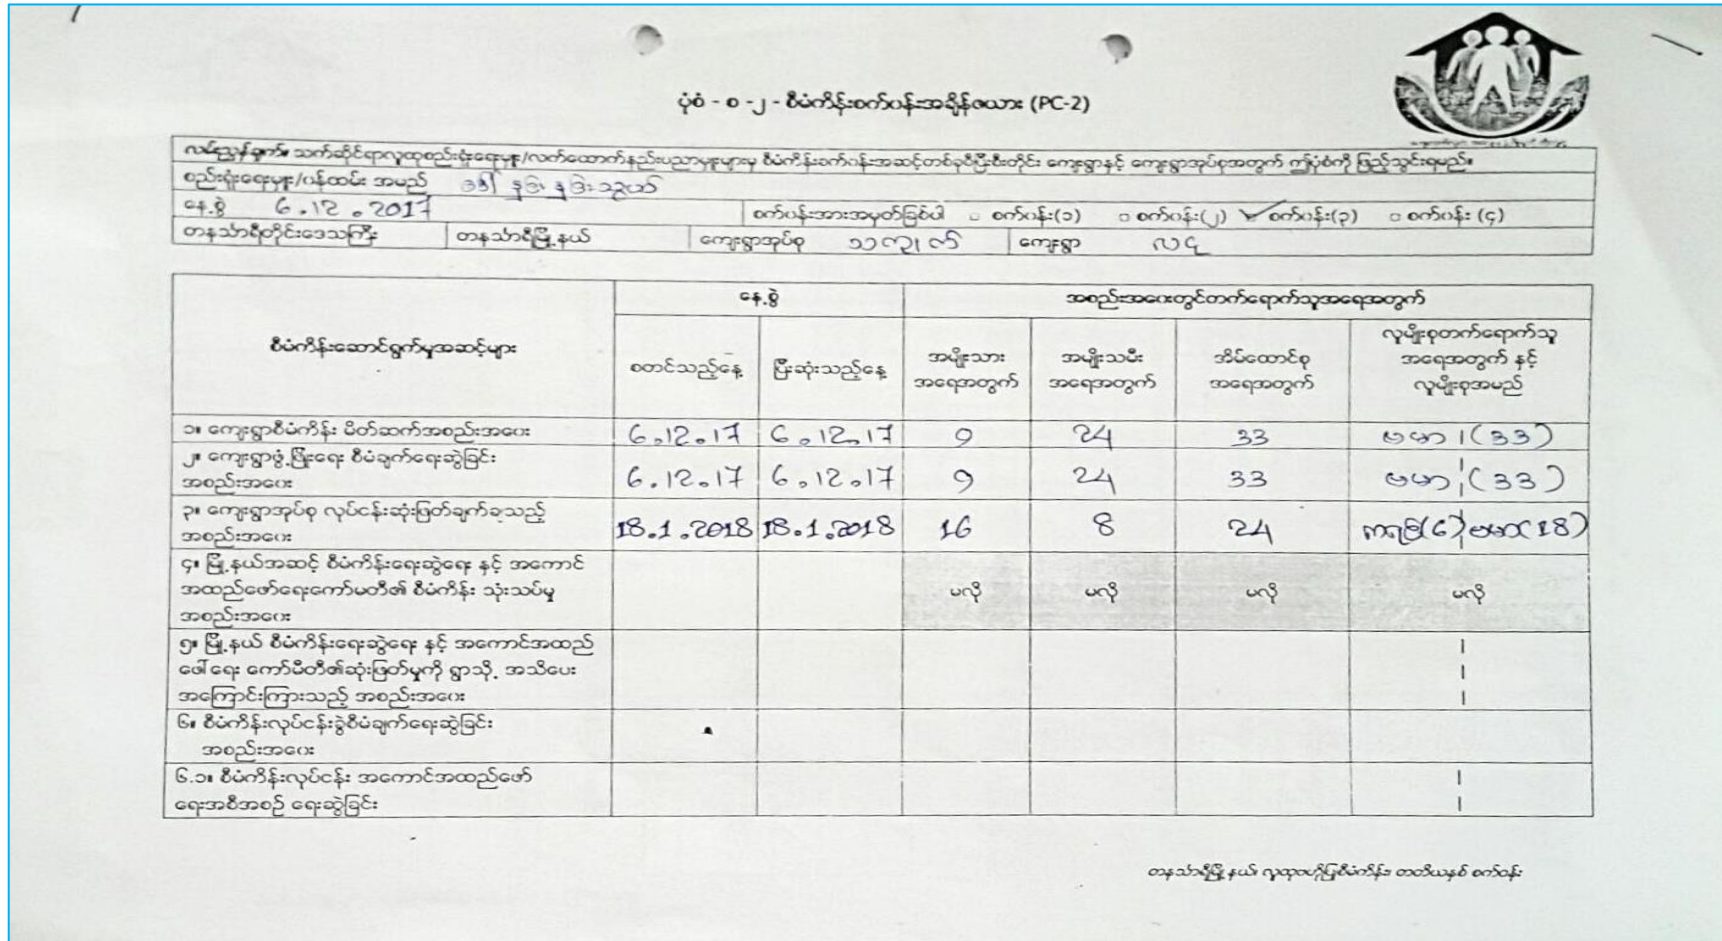 ပုံစံ - စ -၂ - စီမံကိန်းစက်ဝန်းအချိန်ဇယား (PC-2)
လမ်းညွှန်ချက်။ သက်ဆိုင်ရာလူထုစည်းရုံးရေးမှူး/လက်ထောက်နည်းပညာမှူးများမှ စီမံကိန်းစက်ဝန်းအဆင့်တစ်ခုစီပြီးစီးတိုင်း ကျေးရွာနှင့် ကျေးရွာအုပ်စုအတွက် ဤပုံစံကို ဖြည့်သွင်းရမည်။
စည်းရုံးရေးမှူး/ဝန်ထမ်း အမည် ဒေါ်
နေ့စွဲ 6.12.2017 စက်ဝန်းအားအမှတ်ခြစ်ပါ စက်ဝန်း(၁) စက်ဝန်း(၂) စက်ဝန်း(၃) စက်ဝန်း (၄)
တနင်္သာရီတိုင်းဒေသကြီး တနင်္သာရီမြို့နယ် ကျေးရွာအုပ်စု ကျေးရွာ
စီမံကိန်းဆောင်ရွက်မှုအဆင့်များ နေ့စွဲ အစည်းအဝေးတွင်တက်ရောက်သူအရေအတွက်
စတင်သည့်နေ့ ပြီးဆုံးသည့်နေ့ အမျိုးသား အရေအတွက် အမျိုးသမီး အရေအတွက် အိမ်ထောင်စု အရေအတွက် လူမျိုးစုတက်ရောက်သူ အရေအတွက် နှင့် လူမျိုးစုအမည်
၁။ ကျေးရွာစီမံကိန်း မိတ်ဆက်အစည်းအဝေး 6.12.17 6.12.17 9 24 33 ဗမာ (33)
၂။ ကျေးရွာဖွံ့ဖြိုးရေး စီမံချက်ရေးဆွဲခြင်း
အစည်းအဝေး 6.12.17 6.12.17 9 24 33 ဗမာ (33)
၃။ ကျေးရွာအုပ်စု လုပ်ငန်းဆုံးဖြတ်ချက်ချသည့်
အစည်းအဝေး 18.1.2018 18.1.2018 16 8 24 ကရင်(6) ဗမာ(18)
၄။ မြို့နယ်အဆင့် စီမံကိန်းရေးဆွဲရေး နှင့် အကောင်
အထည်ဖော်ရေးကော်မတီ၏ စီမံကိန်း သုံးသပ်မှု မလို မလို မလို မလို
အစည်းအဝေး
၅။ မြို့နယ် စီမံကိန်းရေးဆွဲရေး နှင့် အကောင်အထည်
ဖေါ်ရေး ကော်မီတီ၏ဆုံးဖြတ်မှုကို ရွာသို့ အသိပေး
အကြောင်းကြားသည့် အစည်းအဝေး
၆။ စီမံကိန်းလုပ်ငန်းခွဲစီမံချက်ရေးဆွဲခြင်း
အစည်းအဝေး
၆.၁။ စီမံကိန်းလုပ်ငန်း အကောင်အထည်ဖော်
ရေးအစီအစဉ် ရေးဆွဲခြင်း
တနင်္သာရီမြို့နယ်၊ လူထုဗဟိုပြုစီမံကိန်း၊ တတိယနှစ် စက်ဝန်း